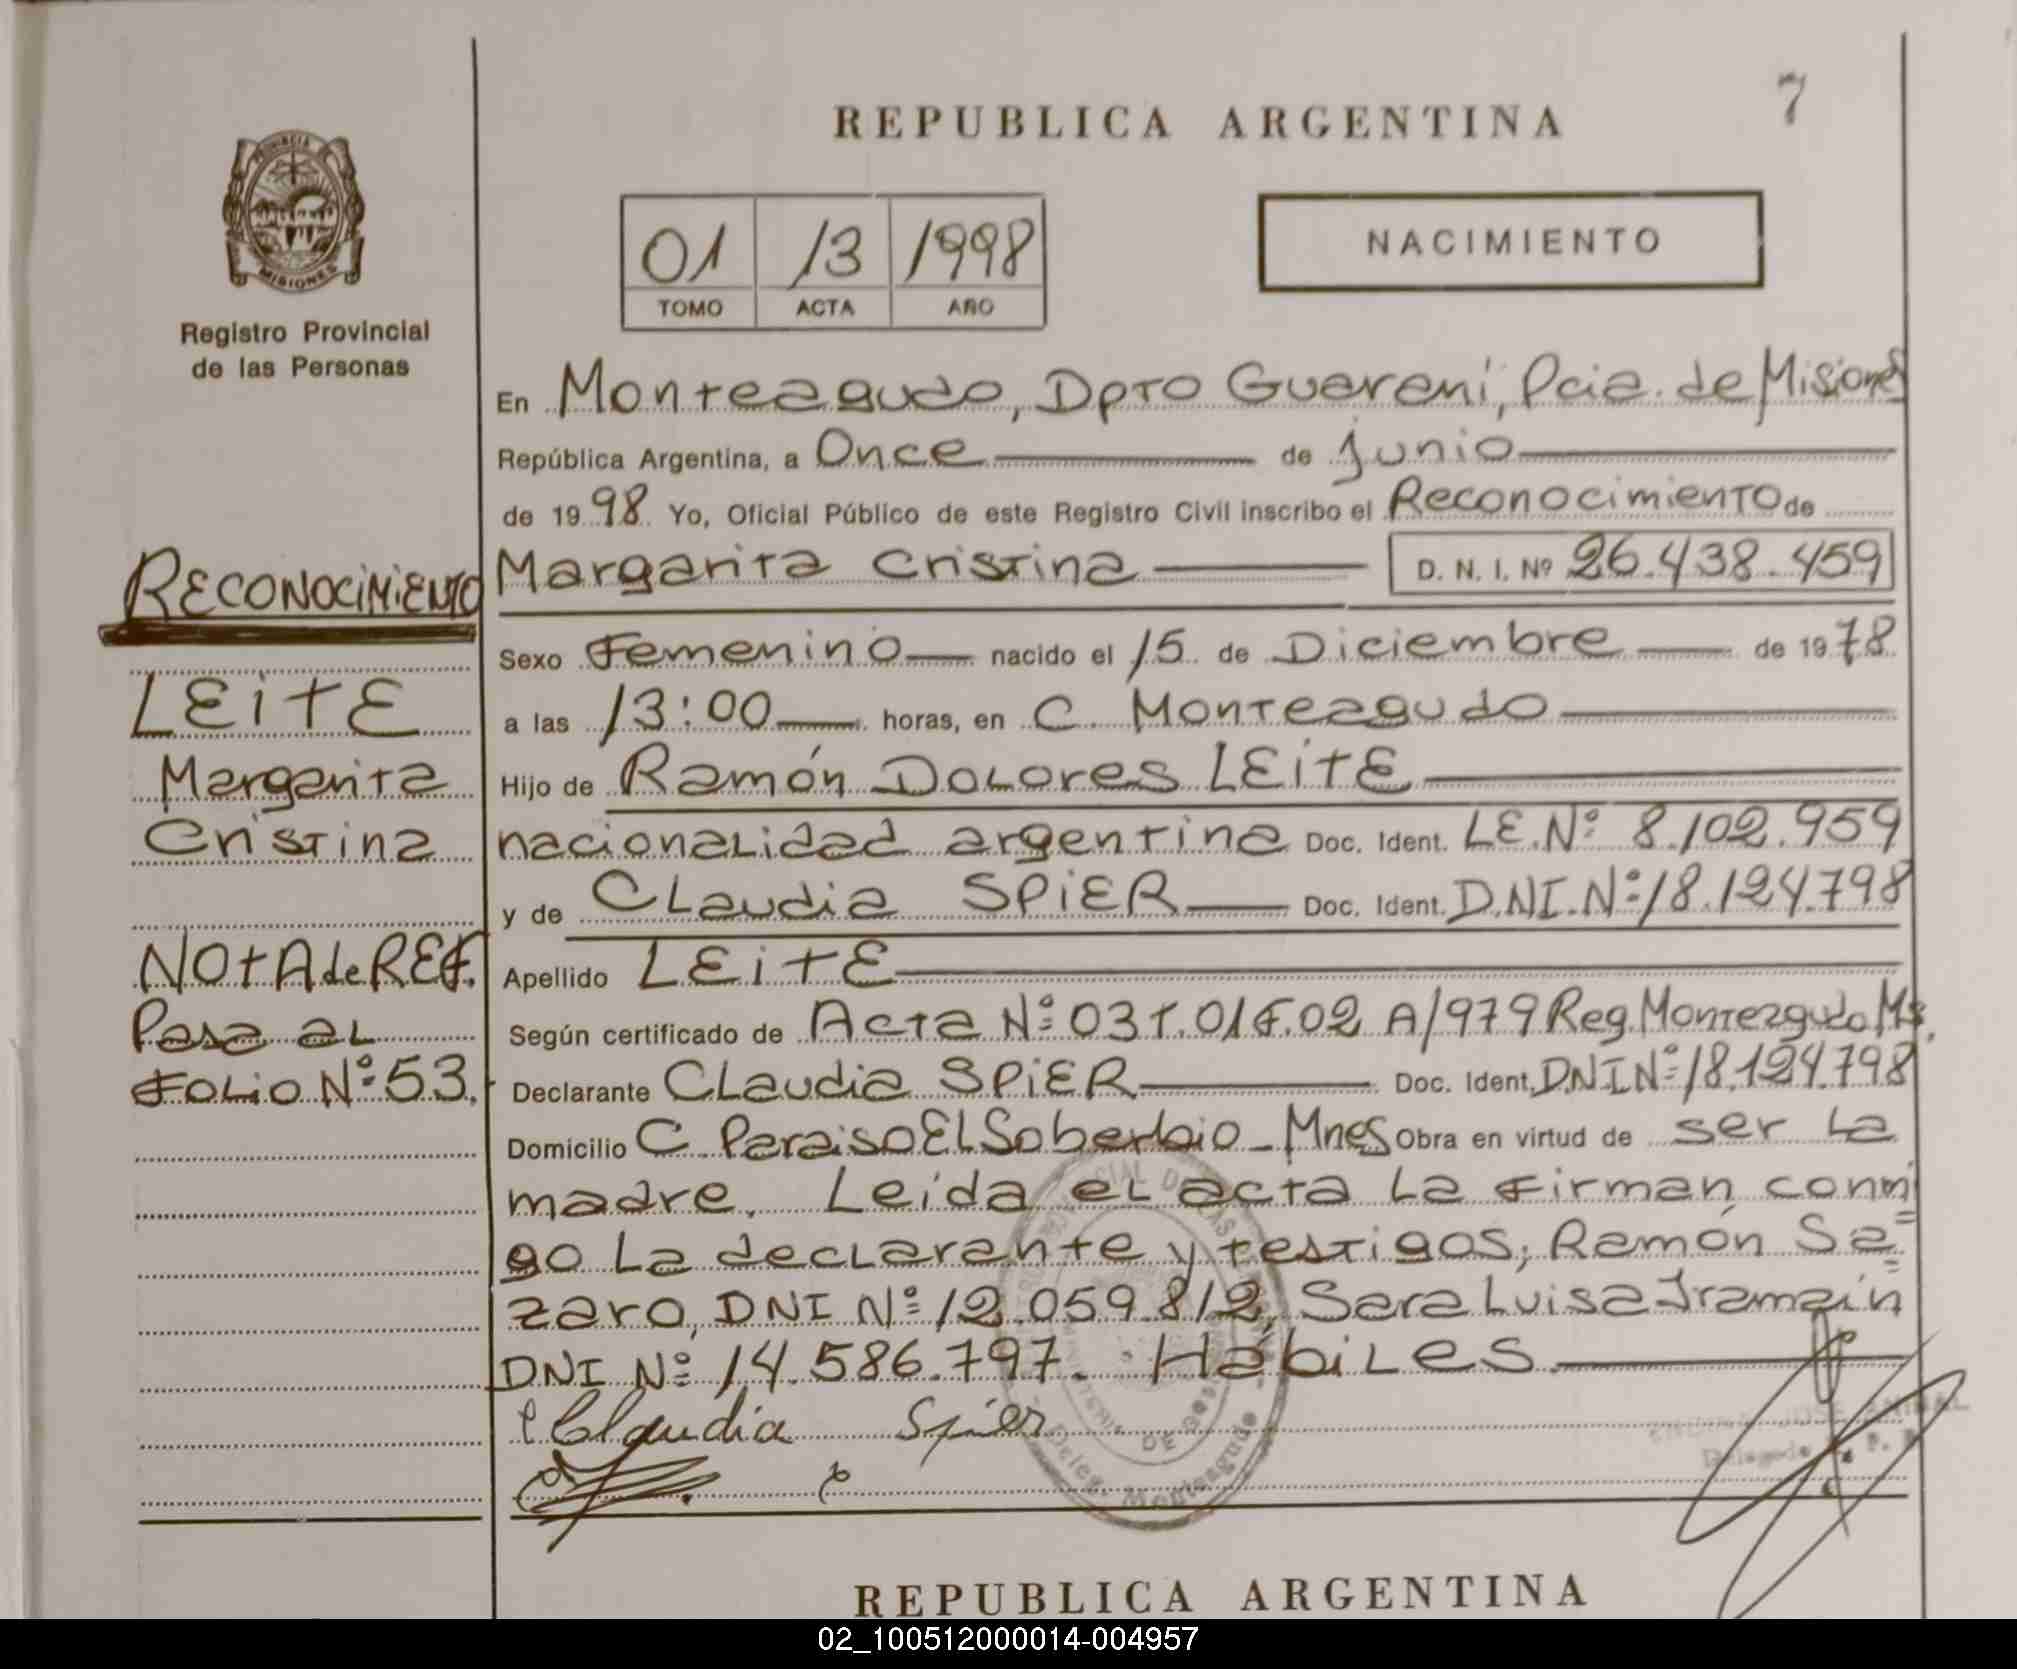 7
REPUBLICA ARGENTINA
PROVINCIA DE
MISIONES
Registro Provincial
de las Personas
01 13 1998
TOMO ACTA AÑO
NACIMIENTO
En Monteagudo, Dpto Guarani, Pcia. de Misiones
República Argentina, a Once de junio
de 1998 Yo, Oficial Público de este Registro Civil inscribo el Reconocimiento de
Margarita Cristina D. N. I. Nº 26.438.459
Sexo Femenino nacido el 15 de Diciembre de 1978
a las 13:00 horas, en C. Monteagudo
Hijo de Ramón Dolores LEITE
nacionalidad argentina Doc. Ident. LE.Nº 8.102.959
y de Claudia SPIER Doc. Ident. D.NI.Nº 18.124.798
Apellido LEITE
Según certificado de Acta Nº 03 T.01 F.02 A/979 Reg. Monteagudo Ms.
Declarante Claudia SPIER Doc. Ident. D.N.I Nº 18.124.798
Domicilio C. Paraiso El Soberbio - Mnes Obra en virtud de ser la
madre. Leida el acta la firman conmi
go la declarante y testigos; Ramón Sa=
zaro, DNI Nº 12.059.812, Sara Luisa Iramain
DNI Nº 14.586.797. Hábiles.
Claudia Spier
RECONOCIMIENTO
LEITE
Margarita
Cristina
NOTA de REF.
Pasa al
FOLIO Nº 53.
Deleg. Monteagudo
REPUBLICA ARGENTINA
02_100512000014-004957